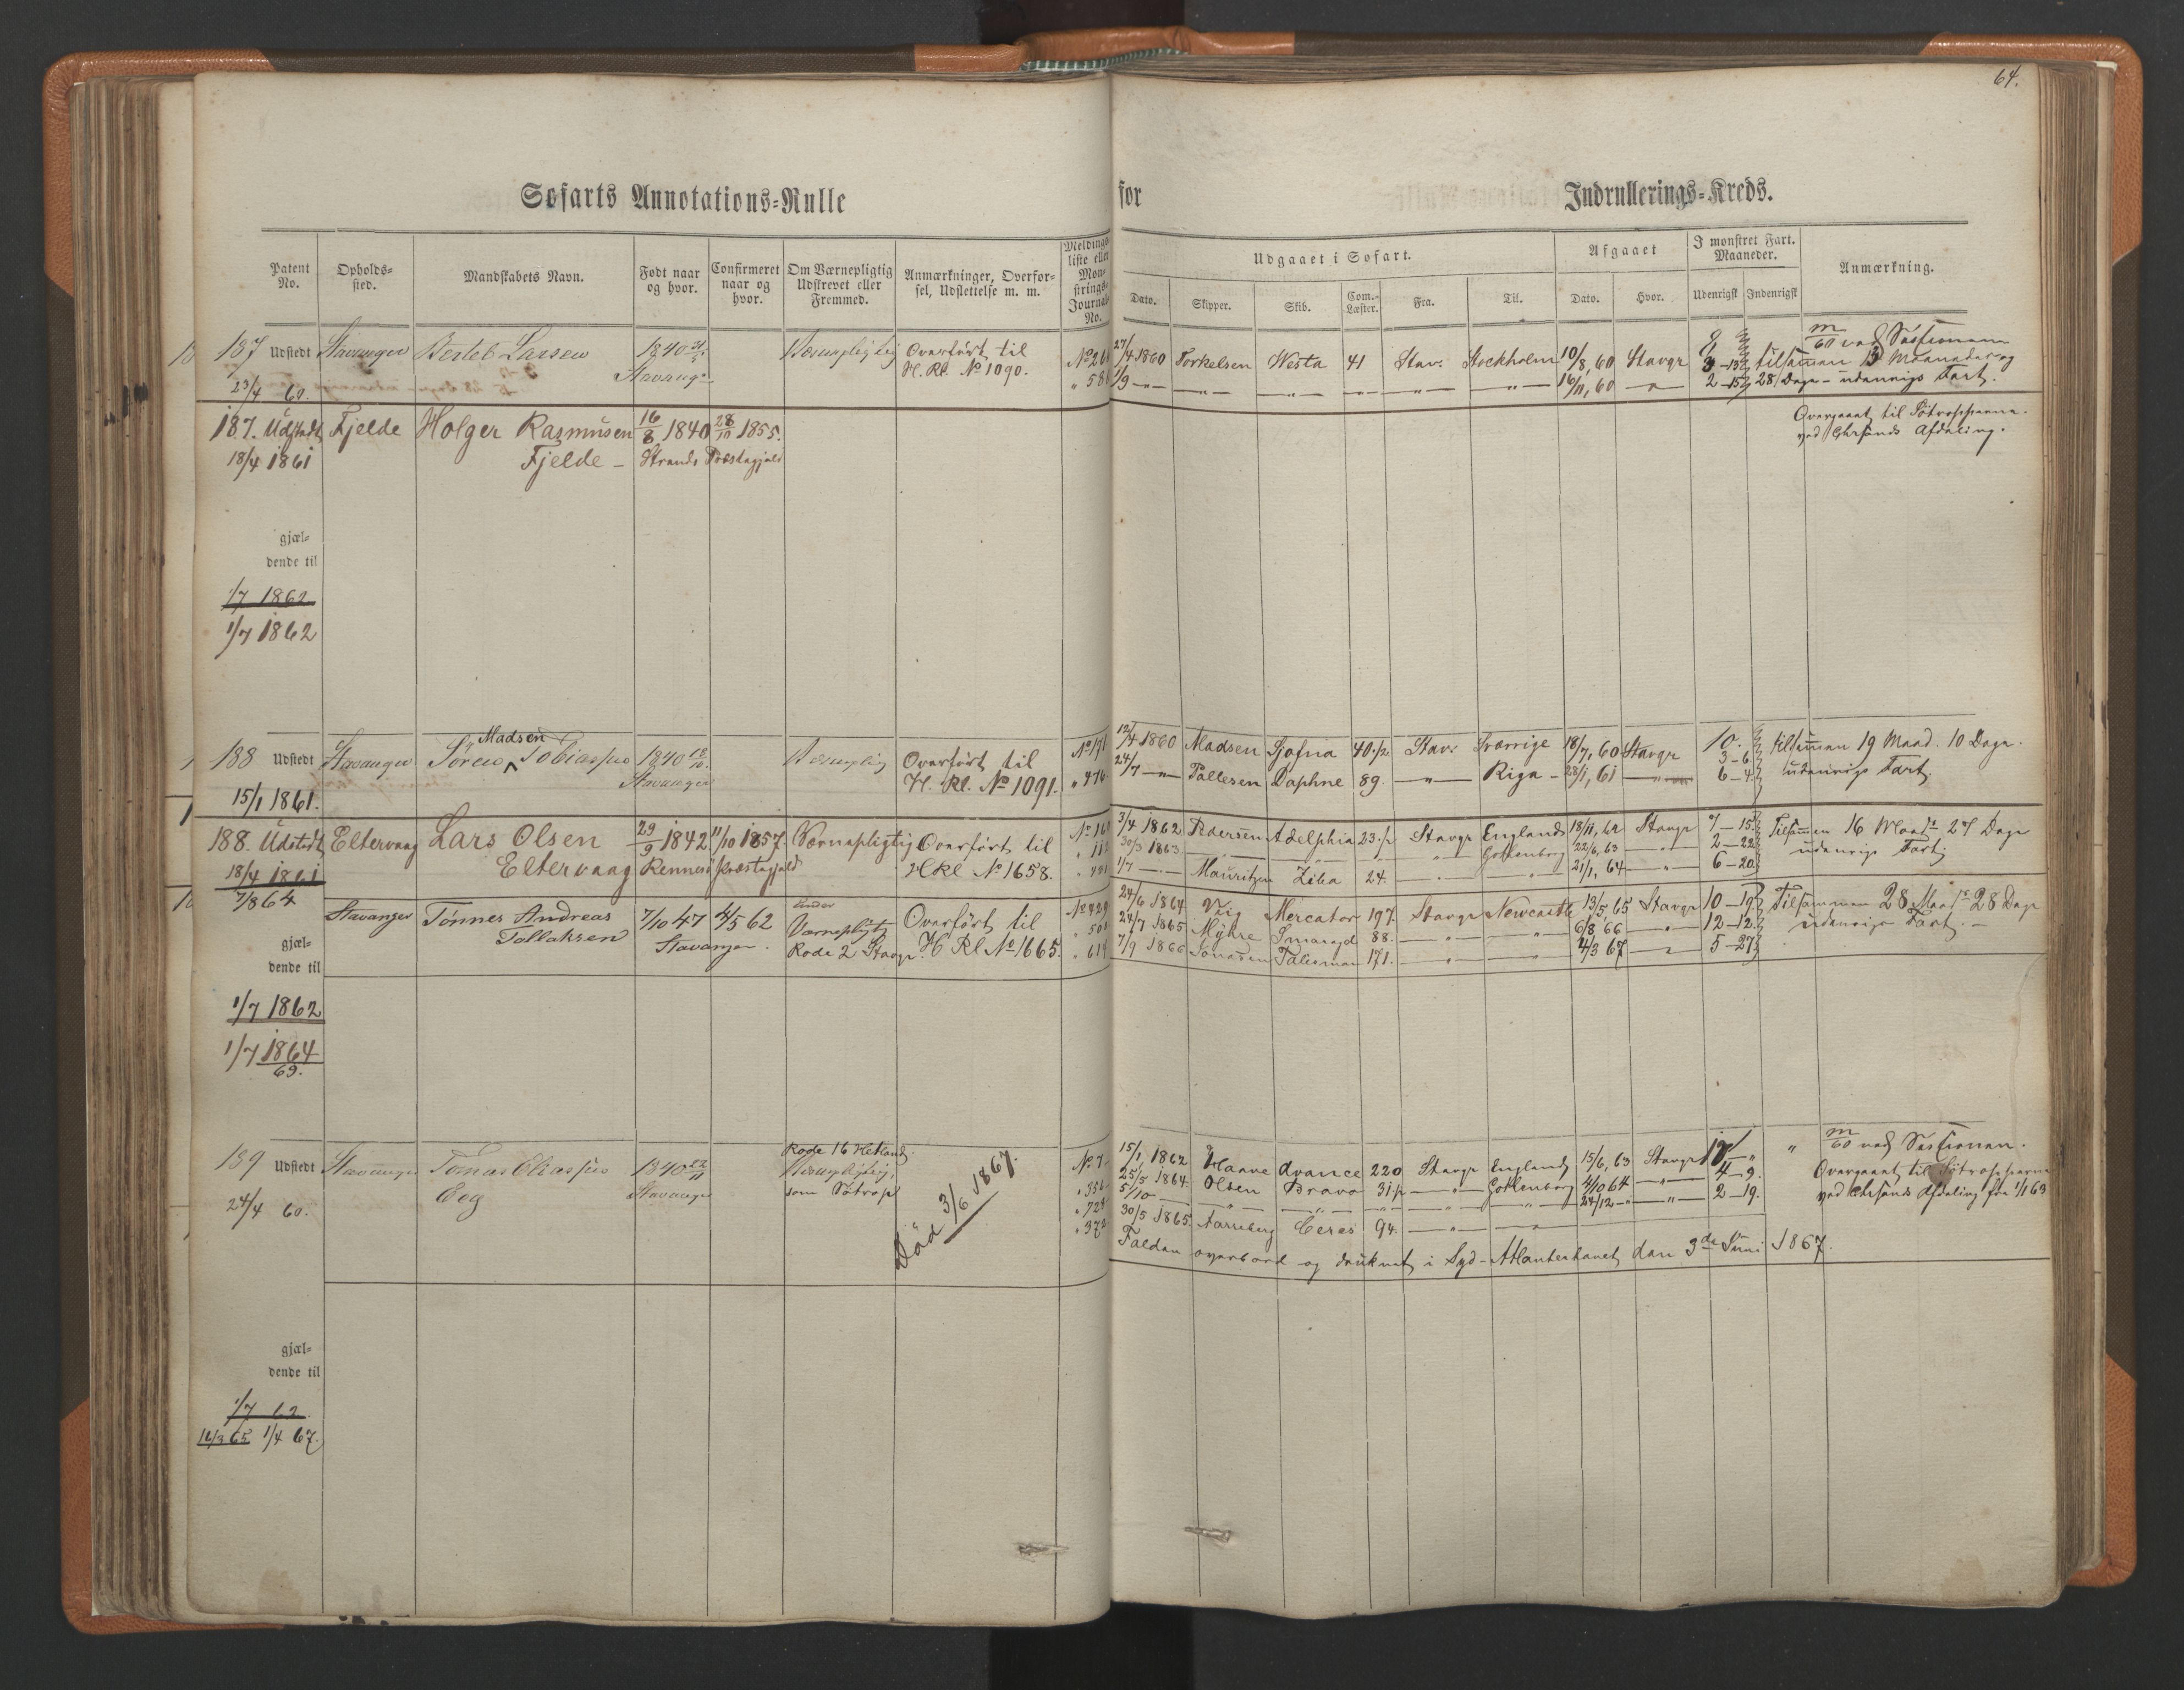 64.
Søfarts Annotations-Rulle for Indrullerings-Kreds.
Patent No. Opholds-sted. Mandskabets Navn. Født naar og hvor. Confirmeret naar og hvor. Om Værnepligtig Udskrevet eller Fremmed. Anmærkninger, Overførsel, Udslettelse m. m. Meldings-liste eller Mønstrings-Journal No.
Udgaaet i Søfart. Afgaaet I mønstret Fart. Maaneder. Anmærkning.
Dato. Skipper. Skib. Com.-Læster. Fra. Til. Dato. Hvor. Udenrigsk Indenrigsk
187 Udstedt Stavanger Bertel Larsen 1840 Værnepligtig Overført til 27/4 1860 Torkelsen Westa 41 Stav. Stockholm 10/8, 60 Stavgr 3-13 tilsamman 13 Maaneder og
Stavanger H. Rl. No 1090. 1/9 -„- 16/11, 60 2-15 28 Dage - udenrigs Fart.
23/4 60.
187. Udstedt Fjelde Holger Rasmusen 16/8 1840 28/10 1855. Overgaaet til Søtropperne
18/4 1861 Fjelde - Strands Præstegjeld ved Chrsands Afdeling.
gjæl-
dende til
1/7 1862
1/7 1862
188 Udstedt Stavanger Søren Madsen Tobiassen 1840 Værnepligtig Overført til No 171 12/4 1860 Madsen Sjofna 40 Stav. Sverrige 18/7, 60 Stavgr 3-6 tilsamman 19 Maad. 10 Dage
Stavanger H. Rl. No 1091. „ 476 24/7 -„- Tallesen Daphne 89. -„- Riga - 28/1, 61 -„- 6-4 udenrigs Fart.
15/1 1861.
188. Udstedt Eltervaag Lars Olsen 29/9 1842. 11/10 1857. Værnepligtig Overført til 3/4 1862 Pedersen Adelphia 23 Stavgr England 18/11, 62 Stavgr 7-15 Tilsammen 16 Maad. 27 Dage
18/4 1861 Eltervaag Rennesø Præstegjeld H Rl No 1658. 30/3 1863 Gottenborg 22/6, 63 2-22 udenrigs Fart
7/8 64 1/7 Mauritzen Ziba 24. 21/1, 64 6-20
Stavanger Tønnes Andreas 7/10 47 4/5 62 Under Værnepligtig Overført til No 429 24/6 1864 Mercator 197. Stavgr Newcastle 13/5, 65 Stavgr 10-19 Tilsammen 28 Maad. 28 Dage
Tallaksen Stavanger. Rode 2 Stavgr. H Rl No 1665. 24/7 1865 Myhre Smaragd 88. 6/8 66 12-12 udenrigs Fart. -
7/9 1866 Jonassen Talisman 171. 4/3 67 5-27
gjæl-
dende til
1/7 1862
1/7 1864
69.
189 Udstedt Stavanger Tomas Eliassen 1840 Rode 16 Hetland. No 7 15/1, 1862 Haave Avance 220 Stavgr England 15/6, 63 Stavgr 17 „ ved Sessionen.
Eeg Stavanger Værnepligtig, Død 3/6 1867. „ 356 25/5 1864 Olsen Bravo 31 -„- Gottenborg 4/10 64 -„- 4-9. Overgaaet til Søtropperne
24/4 60. som Søtrop „ 728 5/10 24/12 2-19. ved Chrsands Afdeling fra 1/1 63
„ 372 30/5 1865. Aarreberg Ceres 94. -„-
Falden overbord og druknet i Syd-Atlanterhavet den 3de Juni 1867.
gjæl-
dende til
1/7 62.
16/3 65 1/4 67.